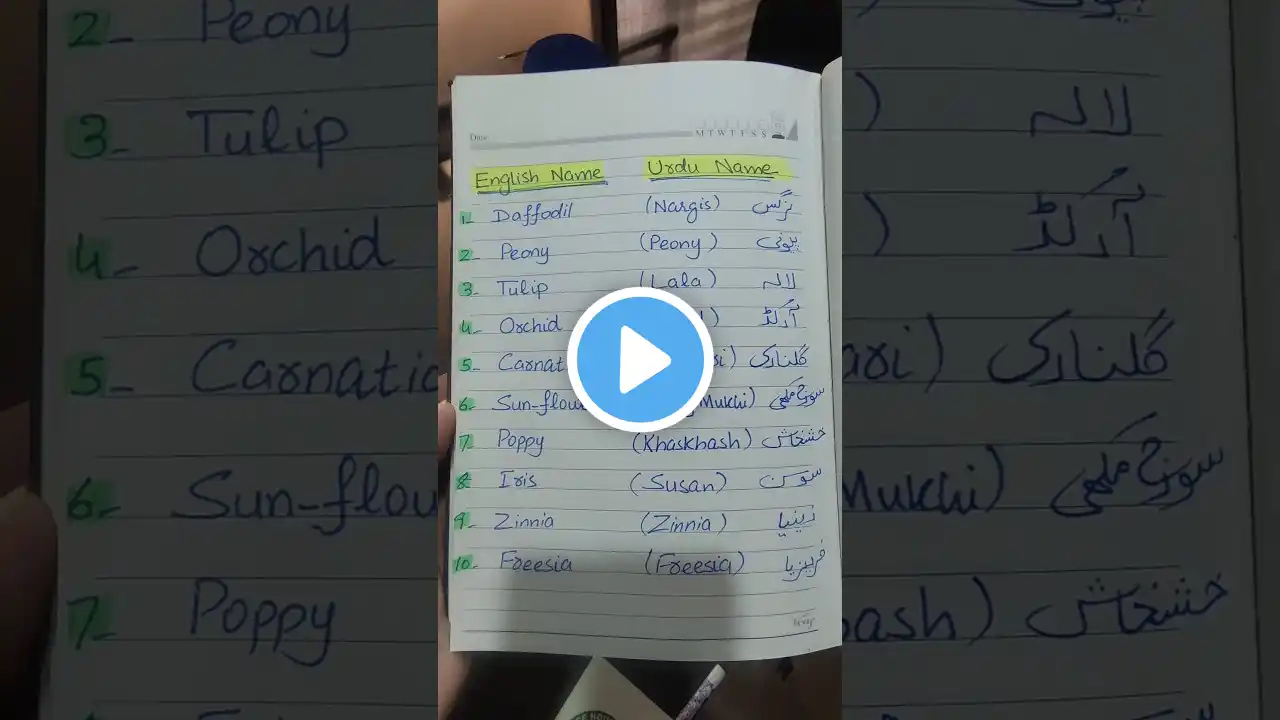 Date
M T W T F S S
English Name Urdu Name
1- Daffodil (Nargis) نرگس
2- Peony (Peony) پیونی
3- Tulip (Lala) لالہ
4- Orchid آرکڈ
5- گلنارکی
6- Sun-flow Mukhi) سورج مکھی
7- Poppy (Khaskhash) خشخاش
8- Iris (Susan) سوسن
9- Zinnia (Zinnia) زینیا
10- Freesia (Freesia) فریزیا